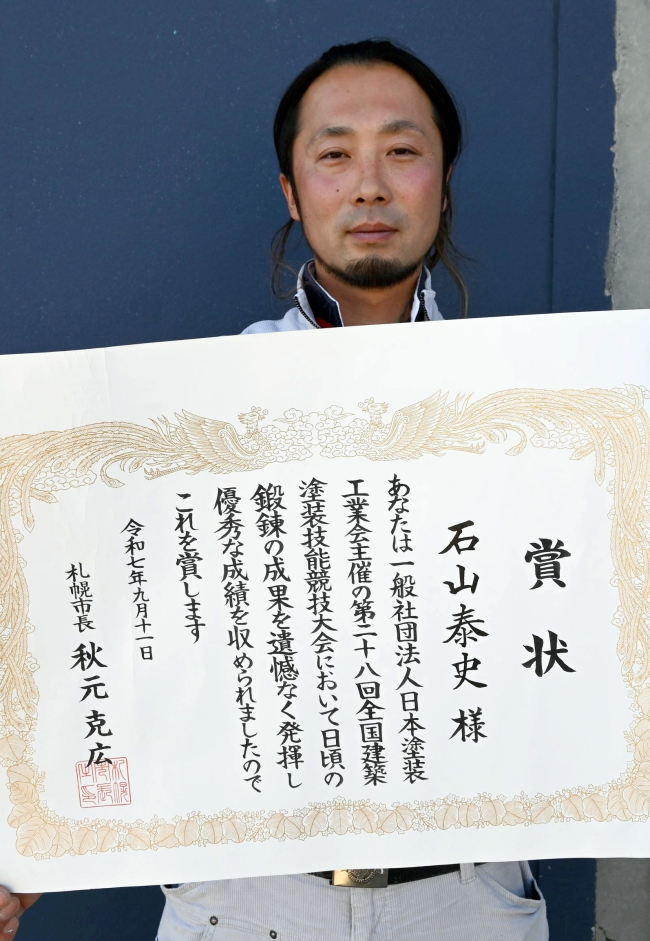 賞状
石山泰史様
あなたは一般社団法人日本塗装
工業会主催の第二十八回全国建築
塗装技能競技大会において日頃の
鍛錬の成果を遺憾なく発揮し
優秀な成績を収められましたので
これを賞します
令和七年九月十一日
札幌市長 秋元克広